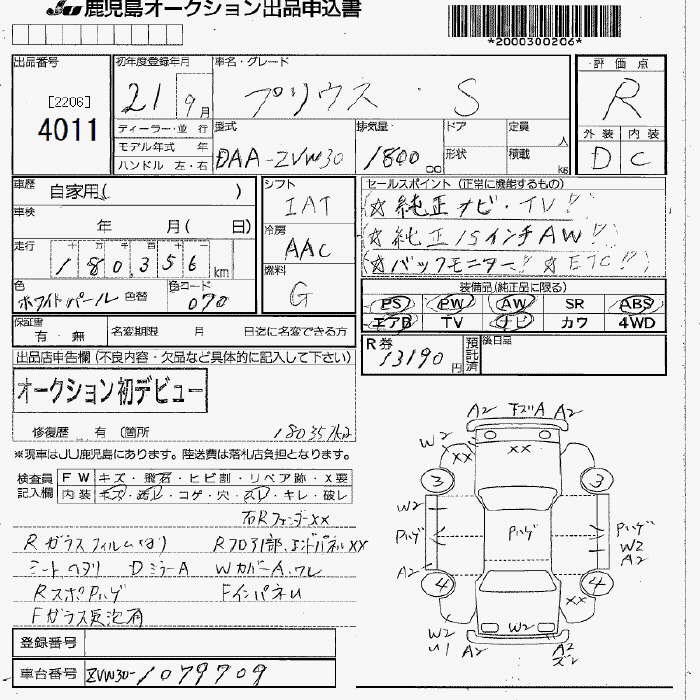 JU 鹿児島オークション出品申込書
*2000300206*
出品番号
[2206]
4011
初年度登録年月
21 9月
車名・グレード
プリウス・S
評価点
R
外装 内装
D C
ディーラー・並 行
モデル年式 年
ハンドル 左・右
型式
DAA-ZVW30
排気量
1800 cc
ドア
形状
定員 人
積載 kg
車歴
自家用( )
車検
年 月( 日)
走行
十 万 千 百 十 一
180,356 km
色
ホワイトパール 色替
色コード
070
シフト
IAT
冷房
AAC
燃料
G
セールスポイント (正常に機能するもの)
☆純正ナビ・TV!!
☆純正15インチAW!!
☆バックモニター!! ☆ETC!!
装備品(純正品に限る)
PS PW AW SR ABS
エアB TV ナビ カワ 4WD
保証書
有・無
名変期限 月 日迄に名変できる方
R券
13190 円
預託済
後日品
出品店申告欄(不良内容・欠品など具体的に記入して下さい)
オークション初デビュー
修復歴 有 (箇所
180357km
※現車はJU鹿児島にあります。陸送費は落札店負担となります。
検査員
記入欄
FW キズ・飛石・ヒビ割・リペア跡・X要
内装 キズ・汚レ・コゲ・穴・スレ・キレ・破レ
右Rフェンダーxx
Rガラスフィルム(ダ) Rフロア引部、エンドパネルxx
シートヘタリ DミラーA WカバーA、ワレ
RスポPハゲ Fインパネム
Fガラス気泡有
登録番号
車台番号
ZVW30-1079709
A2 下ズリA A2
W2
xx xx
3 3
W2
Pハゲ Pハゲ Pハゲ
W2
A2 A2
4 4
xx
W2 W2
U1 A2 A2
ズ2